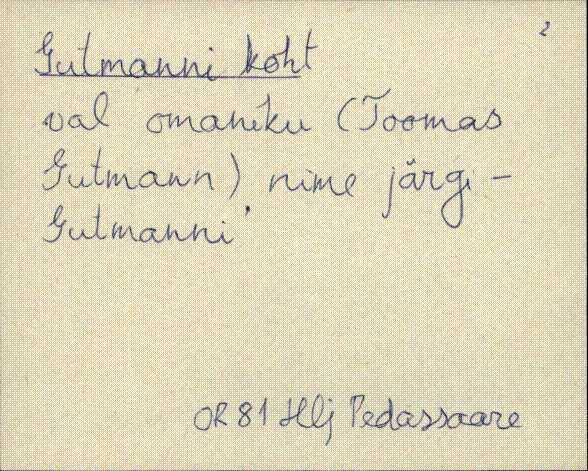 2
Gutmanni koht
val omaniku (Toomas
Gutmann) nime järgi -
Gutmanni'
OR 81 Hlj Pedassaare